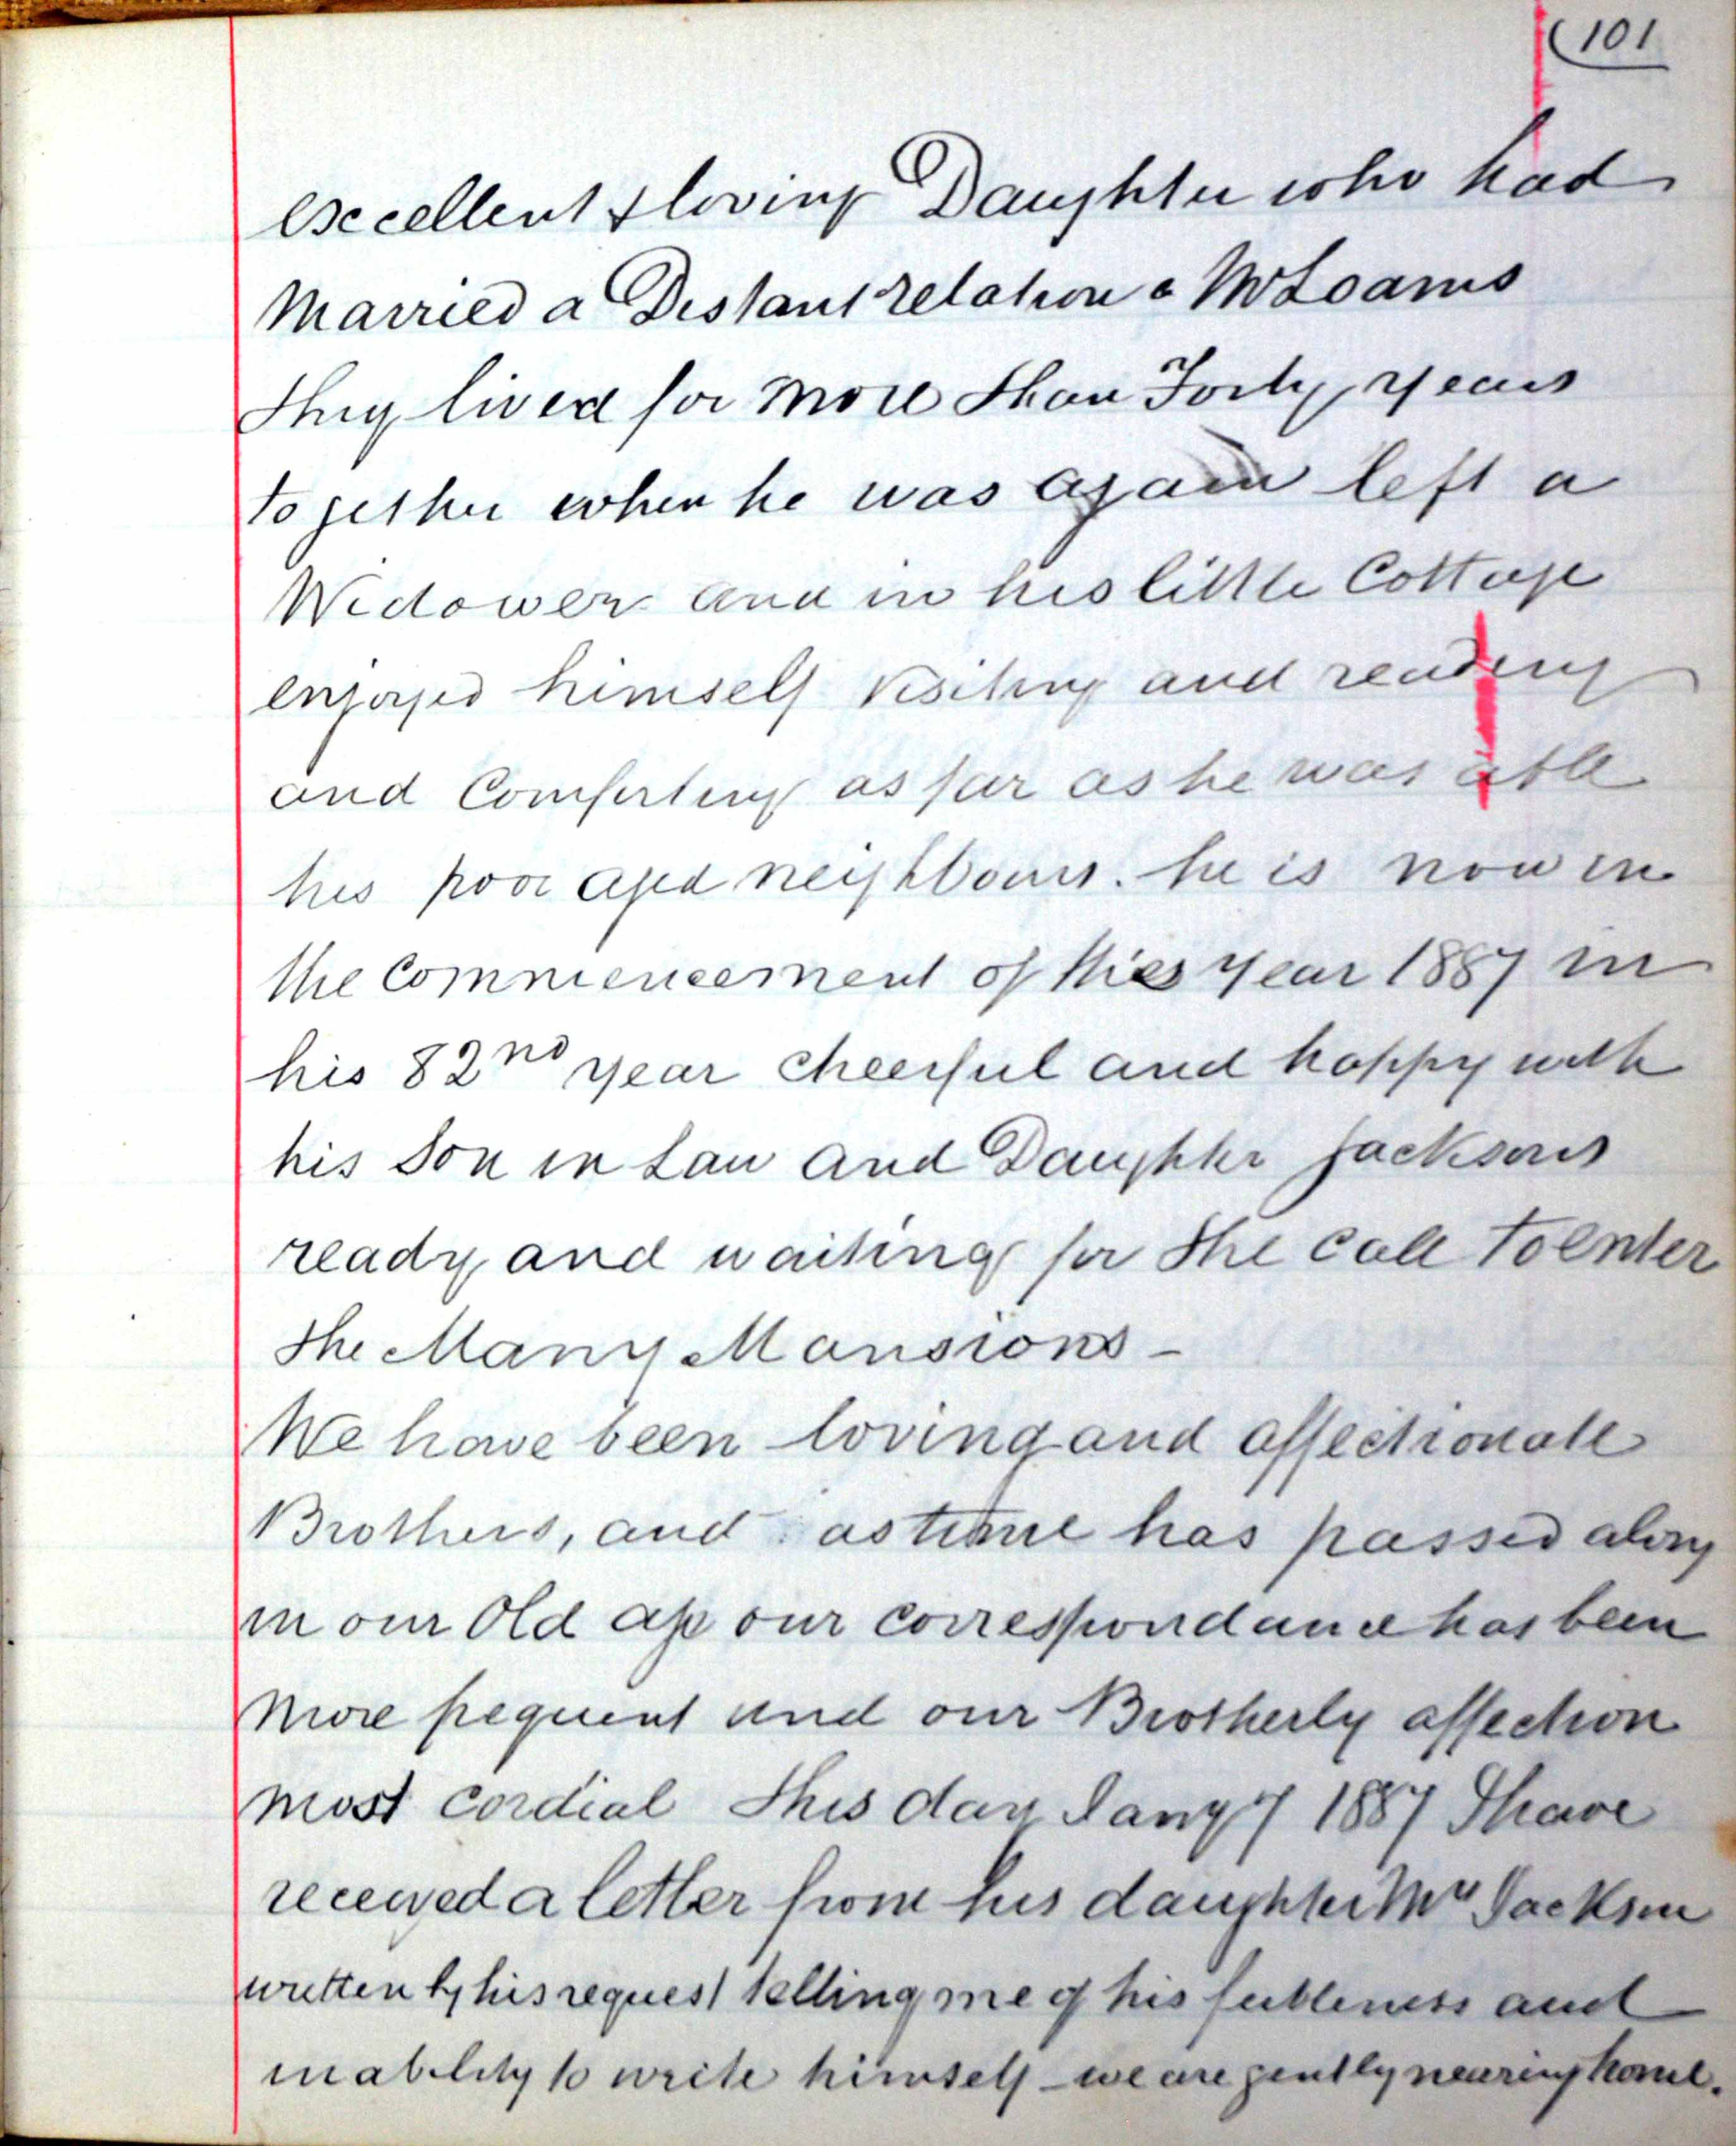 (101
excellent & loving Daughter who had
Married a Distant relation a Mr Loams
they lived for more than Forty years
together when he was again left a
Widower and in his little Cottage
enjoyed himself visiting and reading
and Comforting as far as he was able
his poor aged neighbours. he is now in
the Commencement of this year 1887 in
his 82nd year cheerful and happy with
his Son in Law and Daughter Jacksons
ready and waiting for the call to enter
the Many Mansions -
We have been loving and affectionate
Brothers, and as time has passed along
in our Old age our correspondance has been
more frequent and our Brotherly affection
most cordial this day Jany 7 1887 I have
received a letter from his daughter Mrs Jackson
written by his request telling me of his feebleness and
inability to write himself - we are gently nearing home.